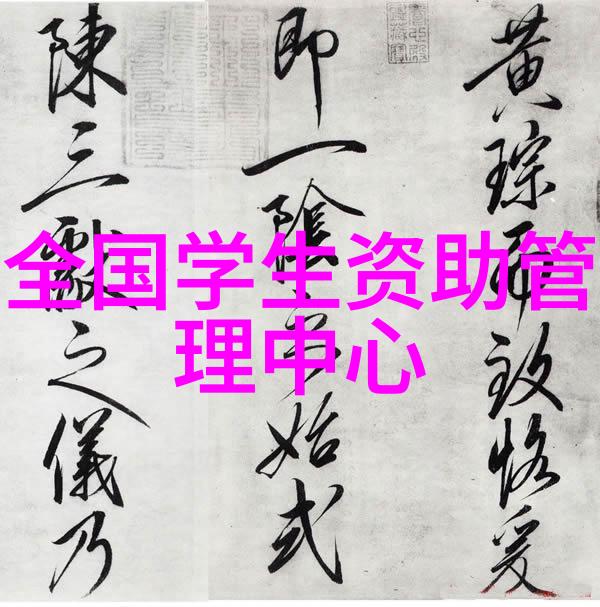 全国学生资助管
理中心
黄琮致恪爰
即一陰始式
陳三獻之儀乃